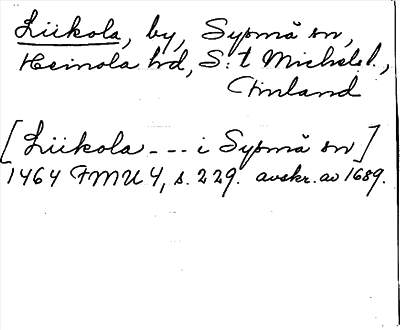 Liikola, by, Sysmä sn,
Heinola hd, S:t Michels l.,
Finland
[Liikola --- i Sysmä sn]
1464 FMU 4, s. 229. avskr. av 1689.